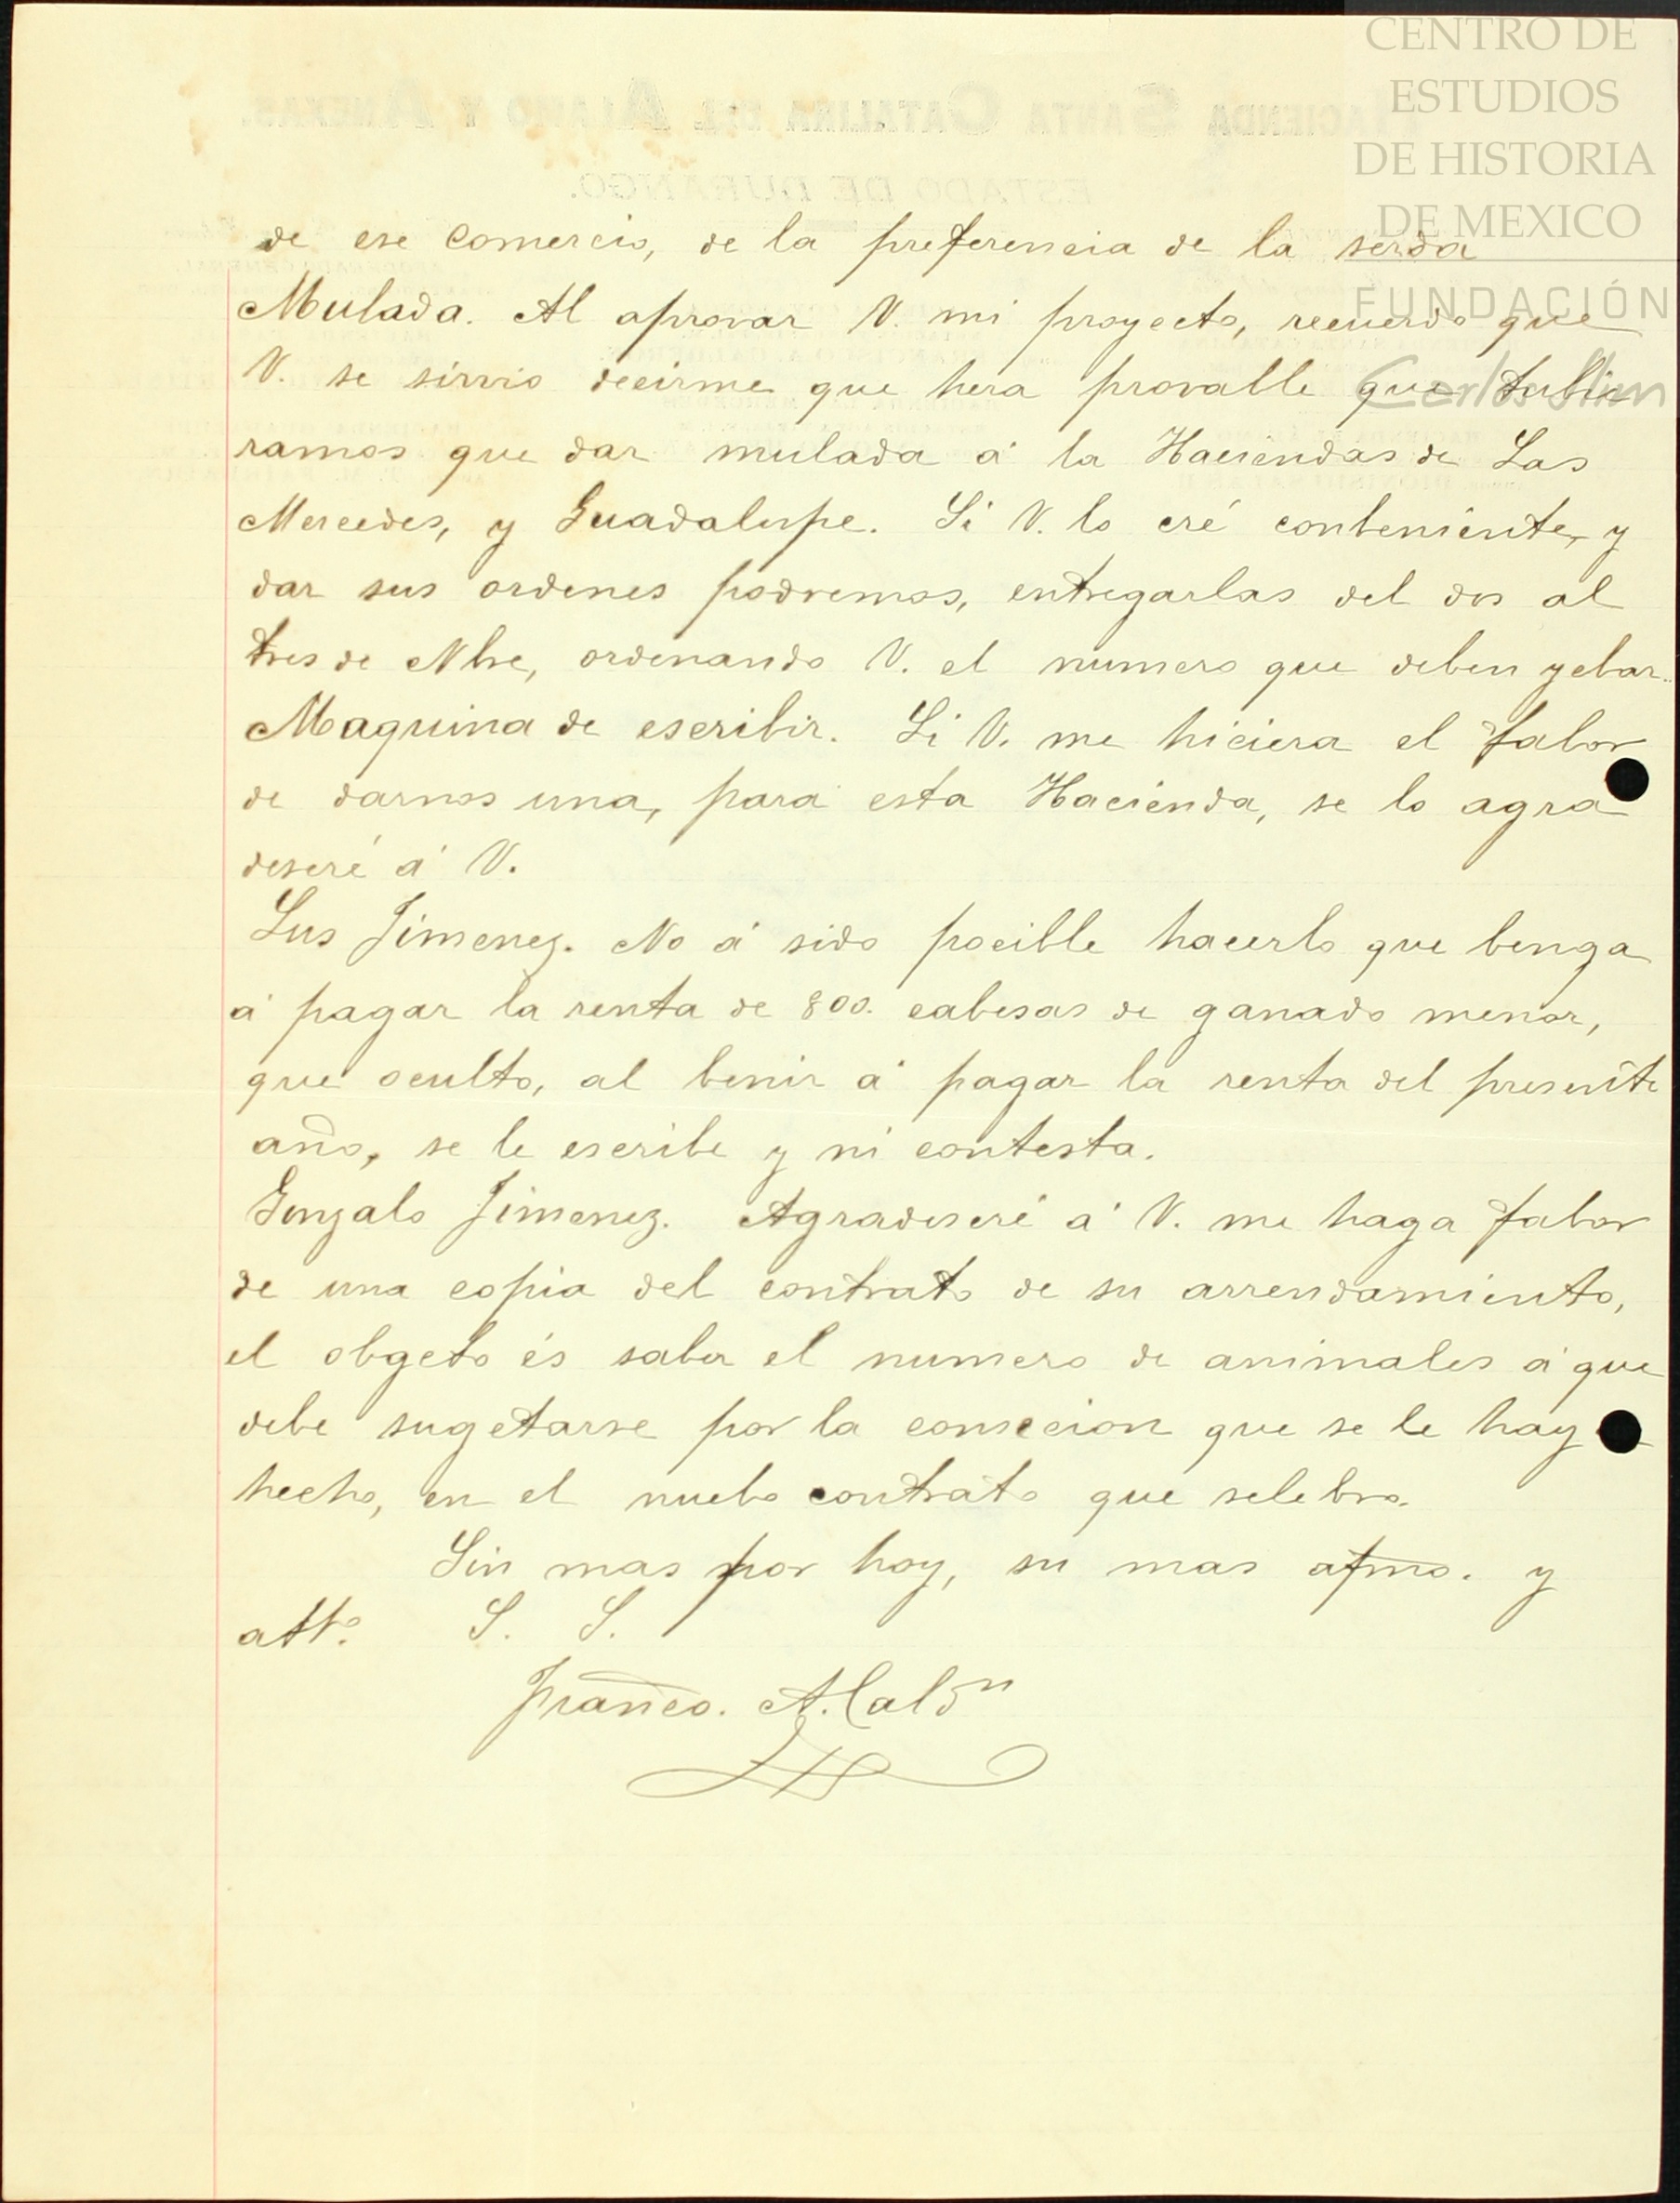 CENTRO DE
ESTUDIOS
DE HISTORIA
DE MEXICO
FUNDACIÓN
Carlos Slim
HACIENDA SANTA CATALINA DEL ALAMO Y ANEXAS.
ESTADO DE DURANGO.
de ese comercio, de la preferencia de la serda
Mulada. Al aprovar V. mi proyecto, recuerdo que
V. se sirvio decirme que hera provable que tubie
ramos que dar mulada á la Haciendas de Las
Mercedes, y Guadalupe. Si V. lo cré conbeniente, y
dar sus ordenes podremos, entregarlas del dos al
tres de Nbre, ordenando V. el numero que deben yebar.
Maquina de escribir. Si V. me hiciera el fabor
de darnos una, para esta Hacienda, se lo agra
deseré á V.
Lus Jimenez. No á sido pocible hacerlo que benga
á pagar la renta de 800. cabesas de ganado menor,
que oculto, al benir á pagar la renta del presente
año, se le escribe y ni contesta.
Gonzalo Jimenez. Agradeseré á V. me haga fabor
de una copia del contrato de su arrendamiento,
el obgeto és saber el numero de animales á que
debe sugetarse por la consecion que se le hay
hecho, en el nuebo contrato que selebro.
Sin mas por hoy, su mas afmo. y
atto. S. S.
Franco. A. Caldn